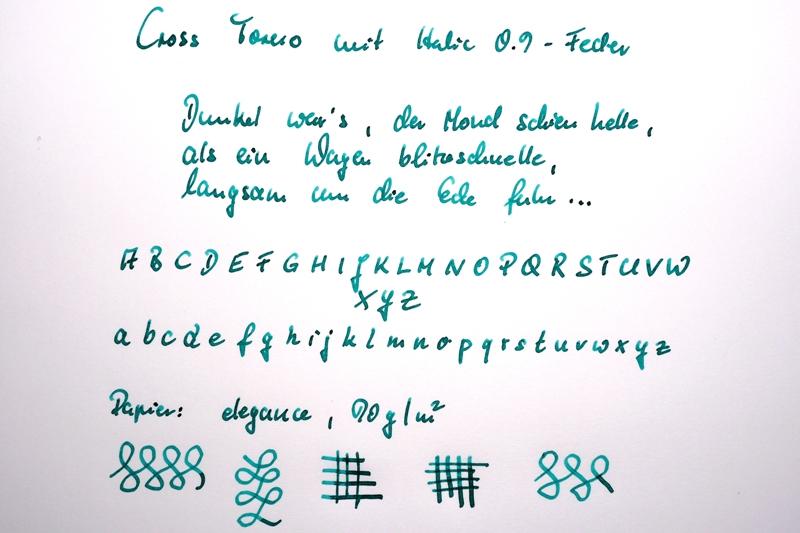 Cross Torero mit Italic 0.9 - Feder
Dunkel war's, der Mond schien helle,
als ein Wagen blitzschnelle,
langsam um die Ecke fuhr...
A B C D E F G H I J K L M N O P Q R S T U V W
X Y Z
a b c d e f g h i j k l m n o p q r s t u v w x y z
Papier: elegance, 90g/m²